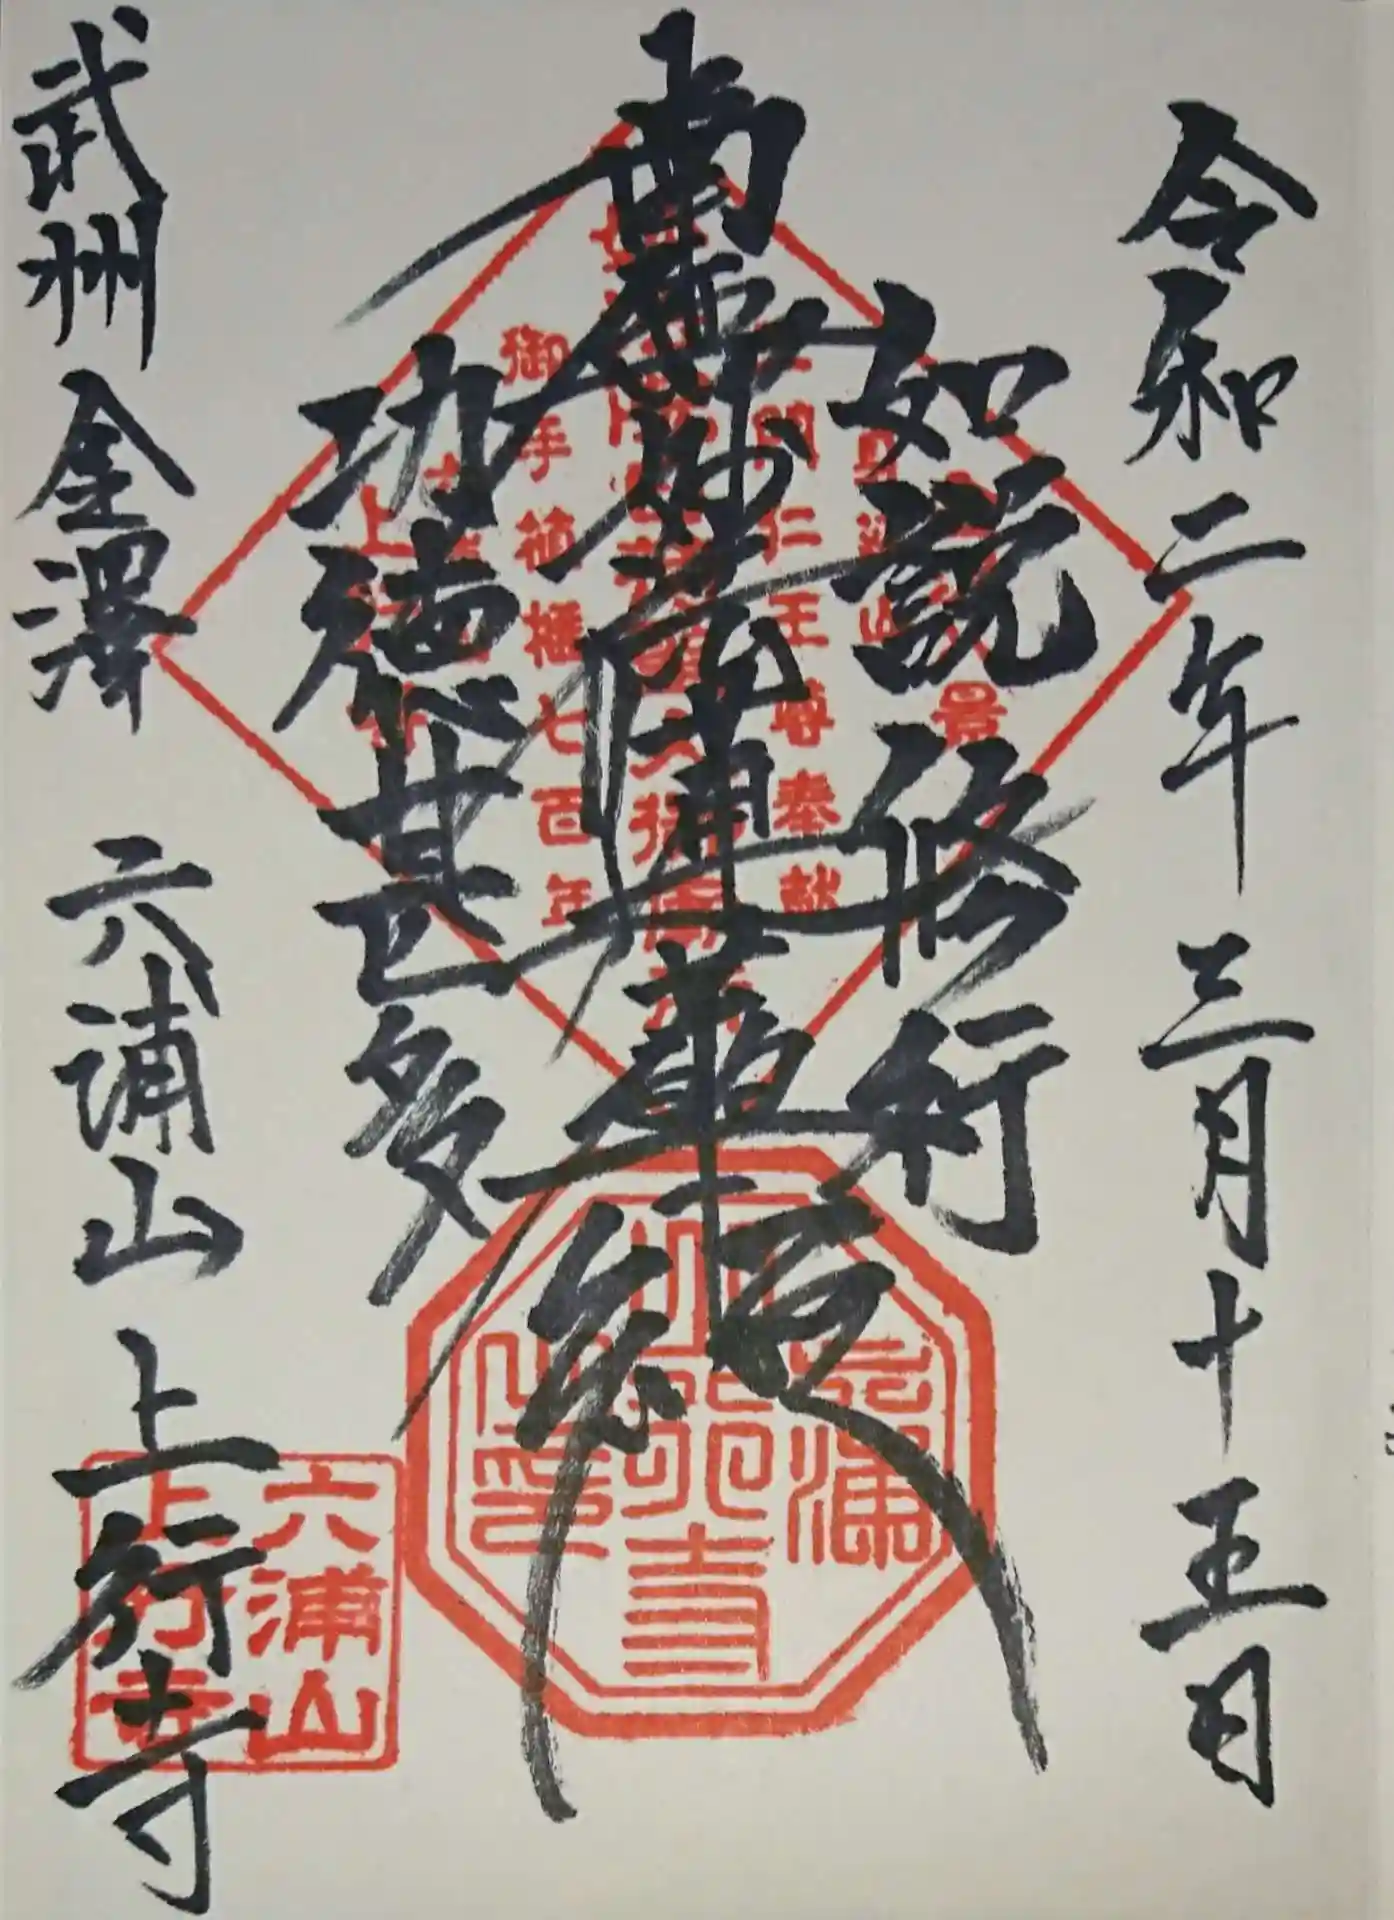 令和二年 三月十五日
如説修行
南無妙法蓮華経
功徳甚多
武州 金澤 六浦山 上行寺
門仁王尊奉献
御手植榧七百年
六浦
上行寺
山印
六浦山
上行寺